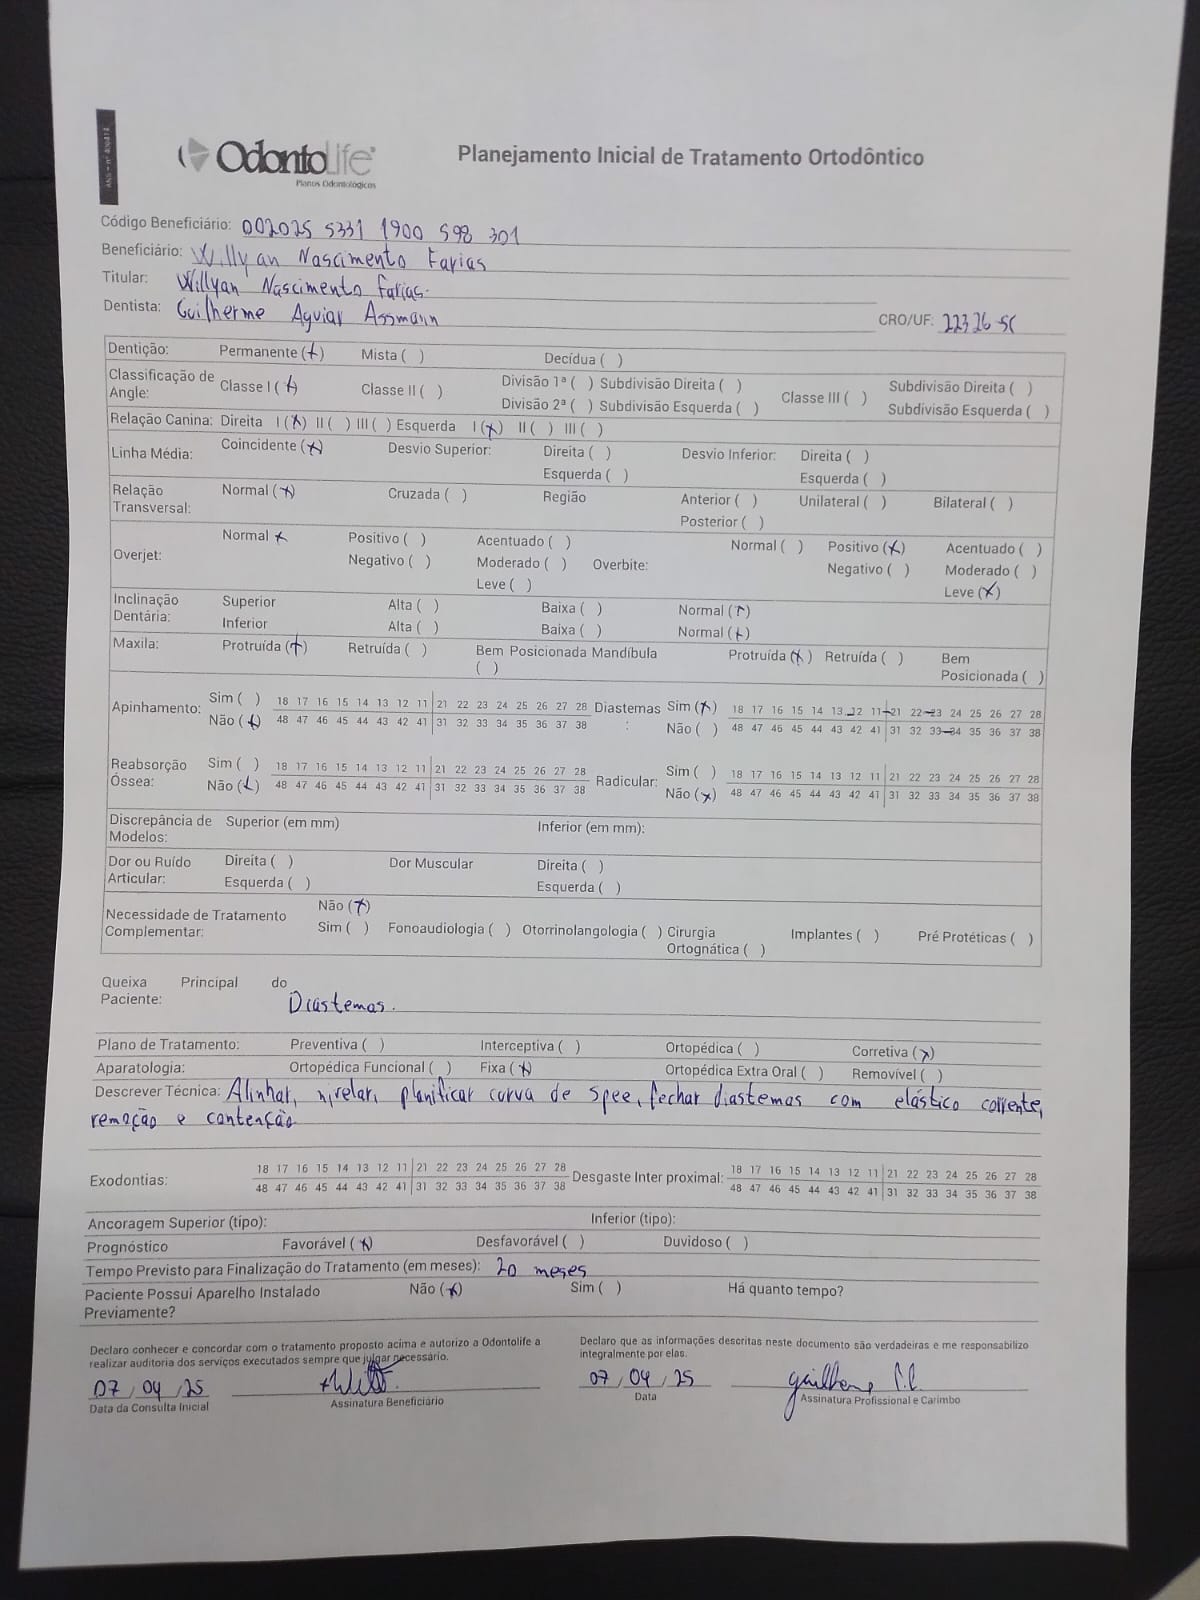 ANS - nº 406414
OdontoLife®
Planos Odontológicos
Planejamento Inicial de Tratamento Ortodôntico
Código Beneficiário: 002025 5331 1900 598 301
Beneficiário: Willyan Nascimento Farias
Titular: Willyan Nascimento Farias.
Dentista: Guilherme Aguiar Assmann CRO/UF: 22326-SC
Dentição: Permanente (x) Mista ( ) Decídua ( )
Classificação de Angle: Classe I (x) Classe II ( ) Divisão 1ª ( ) Subdivisão Direita ( ) Classe III ( ) Subdivisão Direita ( )
Divisão 2ª ( ) Subdivisão Esquerda ( ) Subdivisão Esquerda ( )
Relação Canina: Direita I (x) II ( ) III ( ) Esquerda I (x) II ( ) III ( )
Linha Média: Coincidente (x) Desvio Superior: Direita ( ) Desvio Inferior: Direita ( )
Esquerda ( ) Esquerda ( )
Relação Transversal: Normal (x) Cruzada ( ) Região Anterior ( ) Unilateral ( ) Bilateral ( )
Posterior ( )
Overjet: Normal x Positivo ( ) Acentuado ( ) Overbite: Normal ( ) Positivo (x) Acentuado ( )
Negativo ( ) Moderado ( ) Negativo ( ) Moderado ( )
Leve ( ) Leve (x)
Inclinação Dentária: Superior Alta ( ) Baixa ( ) Normal (x)
Inferior Alta ( ) Baixa ( ) Normal (x)
Maxila: Protruída (x) Retruída ( ) Bem Posicionada ( ) Mandíbula Protruída (x) Retruída ( ) Bem Posicionada ( )
Apinhamento: Sim ( ) 18 17 16 15 14 13 12 11 21 22 23 24 25 26 27 28 Diastemas: Sim (x) 18 17 16 15 14 13 12 11 21 22 23 24 25 26 27 28
Não (x) 48 47 46 45 44 43 42 41 31 32 33 34 35 36 37 38 Não ( ) 48 47 46 45 44 43 42 41 31 32 33 34 35 36 37 38
Reabsorção Óssea: Sim ( ) 18 17 16 15 14 13 12 11 21 22 23 24 25 26 27 28 Radicular: Sim ( ) 18 17 16 15 14 13 12 11 21 22 23 24 25 26 27 28
Não (x) 48 47 46 45 44 43 42 41 31 32 33 34 35 36 37 38 Não (x) 48 47 46 45 44 43 42 41 31 32 33 34 35 36 37 38
Discrepância de Modelos: Superior (em mm) Inferior (em mm):
Dor ou Ruído Articular: Direita ( ) Dor Muscular Direita ( )
Esquerda ( ) Esquerda ( )
Necessidade de Tratamento Complementar: Não (x)
Sim ( ) Fonoaudiologia ( ) Otorrinolangologia ( ) Cirurgia Ortognática ( ) Implantes ( ) Pré Protéticas ( )
Queixa Principal do Paciente: Diastemas.
Plano de Tratamento: Preventiva ( ) Interceptiva ( ) Ortopédica ( ) Corretiva (x)
Aparatologia: Ortopédica Funcional ( ) Fixa (x) Ortopédica Extra Oral ( ) Removível ( )
Descrever Técnica: Alinhar, nivelar, planificar curva de spee, fechar diastemas com elástico corrente,
remoção e contenção.
Exodontias: 18 17 16 15 14 13 12 11 21 22 23 24 25 26 27 28 Desgaste Inter proximal: 18 17 16 15 14 13 12 11 21 22 23 24 25 26 27 28
48 47 46 45 44 43 42 41 31 32 33 34 35 36 37 38 48 47 46 45 44 43 42 41 31 32 33 34 35 36 37 38
Ancoragem Superior (tipo): Inferior (tipo):
Prognóstico Favorável (x) Desfavorável ( ) Duvidoso ( )
Tempo Previsto para Finalização do Tratamento (em meses): 20 meses
Paciente Possui Aparelho Instalado Previamente? Não (x) Sim ( ) Há quanto tempo?
Declaro conhecer e concordar com o tratamento proposto acima e autorizo a Odontolife a
realizar auditoria dos serviços executados sempre que julgar necessário.
Declaro que as informações descritas neste documento são verdadeiras e me responsabilizo
integralmente por elas.
07/04/25
Data da Consulta Inicial
Assinatura Beneficiário
07/04/25
Data
Assinatura Profissional e Carimbo